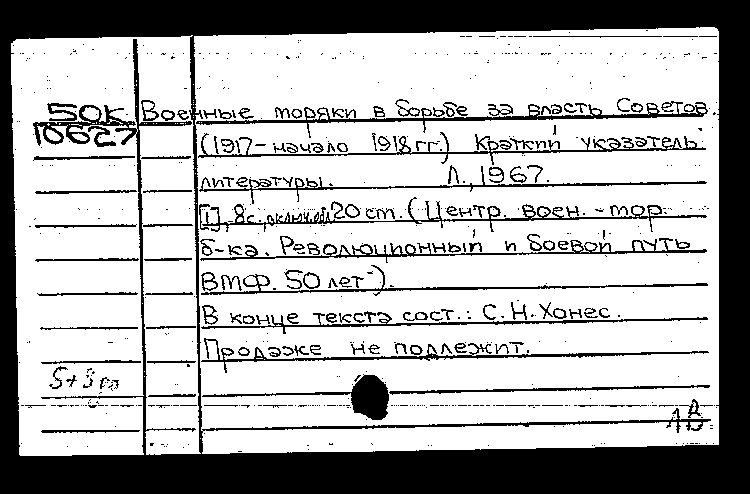 50К Военные моряки в борьбе за власть Советов.
10627 (1917-начало 1918 гг.) Краткий указатель
литературы. Л., 1967.
[1], 8с., включ.обл 20 cm. (Центр. воен.-мор.
б-ка. Революционный и боевой путь
ВМФ. 50 лет).
В конце текста сост.: С.Н.Хонес.
Продаже не подлежит.
5+3
1В